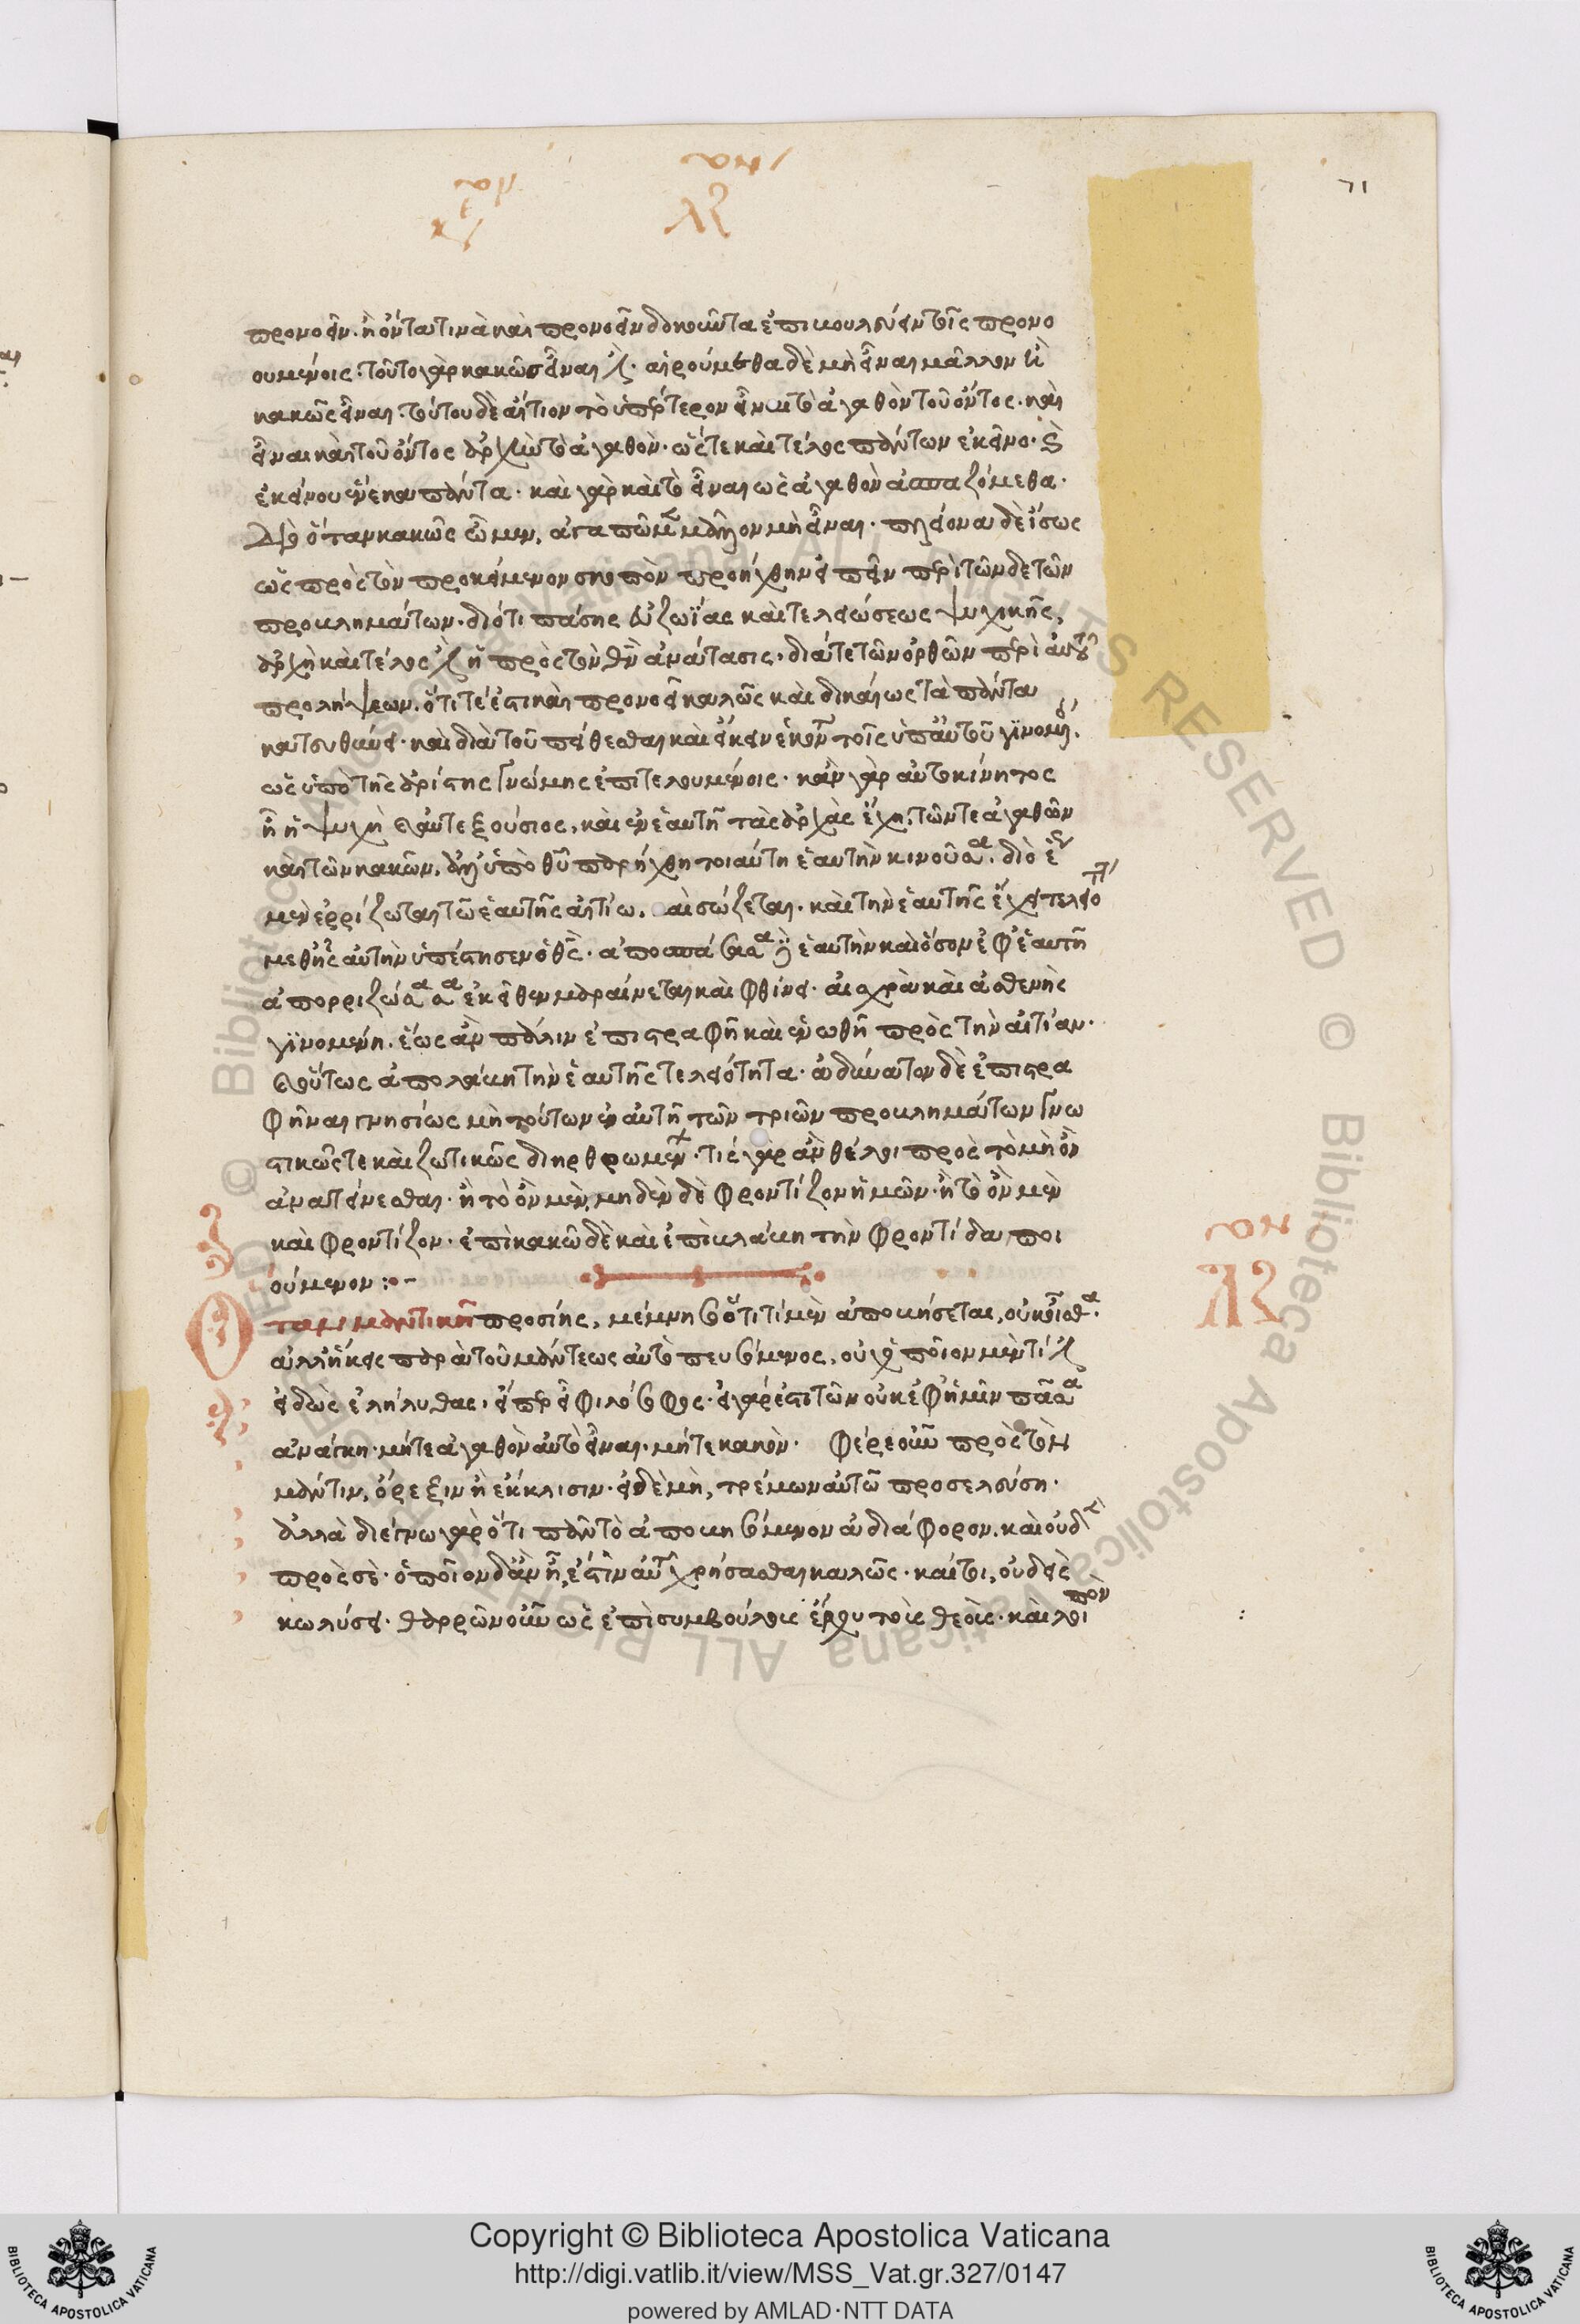 71
λζ
προνοεῖν. ἢ ὄντα τινὰ καὶ προνοεῖν δοκοῦντα ἐπιβουλεύειν τοῖς προνο
ουμένοις. τοῦτο γὰρ κακῶς εἶναι ἐστὶ. αἱρούμεθα δὲ μὴ εἶναι μᾶλλον ἢ
κακῶς εἶναι. τούτου δὲ αἴτιον τὸ ὑπέρτερον εἶναι τὸ ἀγαθὸν τοῦ ὄντος. καὶ
εἶναι καὶ τοῦ ὄντος ἀρχὴν τὸ ἀγαθόν. ὥστε καὶ τέλος πάντων ἐκεῖνο. καὶ
ἐκείνου ἕνεκα πάντα. καὶ γὰρ καὶ τὸ εἶναι ὡς ἀγαθὸν ἀσπαζόμεθα.
διὸ ὅταν κακῶς ὦμεν, ἀγαπῶμεν μᾶλλον μὴ εἶναι. πλείονα δὲ ἴσως
ὡς πρὸς τὸν προκείμενον σκοπὸν προήχθην εἰπεῖν περὶ τῶνδε τῶν
προβλημάτων. διότι πάσης εὐζωΐας καὶ τελειώσεως ψυχικῆς,
ἀρχὴ καὶ τέλος ἐστὶν ἡ πρὸς τὸν θεὸν ἀνάτασις, διά τε τῶν ὀρθῶν περὶ αὐτοῦ
προλήψεων. ὅτι τέ ἐστι καὶ προνοεῖ καλῶς καὶ δικαίως τὰ πάντα
κατευθύνει. καὶ διὰ τοῦ πείθεσθαι καὶ εἴκειν ἑκόντα τοῖς ὑπ' αὐτοῦ γινομένοις.
ὡς ὑπὸ τῆς ἀρίστης γνώμης ἐπιτελουμένοις. κἂν γὰρ αὐτοκίνητος
ᾖ ἡ ψυχὴ καὶ αὐτεξούσιος, καὶ ἐν ἑαυτῇ τὰς ἀρχὰς ἔχῃ, τῶν τε ἀγαθῶν
καὶ τῶν κακῶν, ἀλλ' ὑπὸ θεοῦ παρήχθη τοιαύτη ἑαυτὴν κινοῦσα. διὸ ἕως
μὲν ἐρρίζωται τῷ ἑαυτῆς αἰτίῳ, καὶ σώζεται. καὶ τὴν ἑαυτῆς ἔχει τελειότητα
μεθ' ἧς αὐτὴν ὑπέστησεν ὁ θεός. ἀποσπάσασα δὲ ἑαυτὴν καὶ ὅσον ἐφ' ἑαυτῇ
ἀπορριζώσασα ἐκεῖθεν μαραίνεται καὶ φθίνει. αἰσχρὰ καὶ ἀσθενὴς
γινομένη. ἕως ἂν πάλιν ἐπιστραφῇ καὶ ἑνωθῇ πρὸς τὴν αἰτίαν.
καὶ οὕτως ἀπολάβῃ τὴν ἑαυτῆς τελειότητα. ἀδύνατον δὲ ἐπιστρα
φῆναι γνησίως μὴ τούτων ἐν αὐτῇ τῶν τριῶν προβλημάτων γνω
στικῶς τε καὶ ζωτικῶς διηρθρωμένων. τίς γὰρ ἂν θέλοι πρὸς τὸ μὴ ὂν
ἀνατείνεσθαι. ἢ τὸ ὂν μὲν, μηδὲν δὲ φροντίζον ἡμῶν. ἢ τὸ ὂν μὲν
καὶ φροντίζον. ἐπὶ κακῷ δὲ καὶ ἐπὶ βλάβῃ τὴν φροντίδα ποι
ούμενον:-
Ὅταν μαντικῇ προσίῃς, μέμνησο ὅτι τί μὲν ἀποβήσεται, οὐκ οἶσθα.
ἀλλ' ἥκεις παρὰ τοῦ μάντεως αὐτὸ πευσόμενος, ὁποῖον μέν τί ἐστιν
εἰδὼς ἐλήλυθας, εἴπερ εἶ φιλόσοφος. εἰ γάρ ἐστι τῶν οὐκ ἐφ' ἡμῖν πᾶσα
ἀνάγκη. μήτε ἀγαθὸν αὐτὸ εἶναι. μήτε κακόν. φέρε οὖν πρὸς τὸν
μάντιν, ὄρεξιν ἢ ἔκκλισιν. εἰ δὲ μὴ, τρέμων αὐτῷ προσελεύσῃ.
ἀλλὰ διεγνωκὼς ὅτι πᾶν τὸ ἀποβησόμενον ἀδιάφορον. καὶ οὐδὲν
πρὸς σέ. ὁποῖον δ' ἂν ᾖ, ἔσται αὐτῷ χρήσασθαι καλῶς. καὶ τοῦτο, οὐδεὶς
κωλύσει. θαρρῶν οὖν ὡς ἐπὶ συμβούλους ἔρχου τοὺς θεούς. καὶ λοιπὸν
λζ
Copyright © Biblioteca Apostolica Vaticana
http://digi.vatlib.it/view/MSS_Vat.gr.327/0147
powered by AMLAD·NTT DATA
BIBLIOTECA APOSTOLICA VATICANA
BIBLIOTECA APOSTOLICA VATICANA
© Biblioteca Apostolica Vaticana ALL RIGHTS RESERVED © Biblioteca Apostolica Vaticana ALL RIGHTS RESERVED